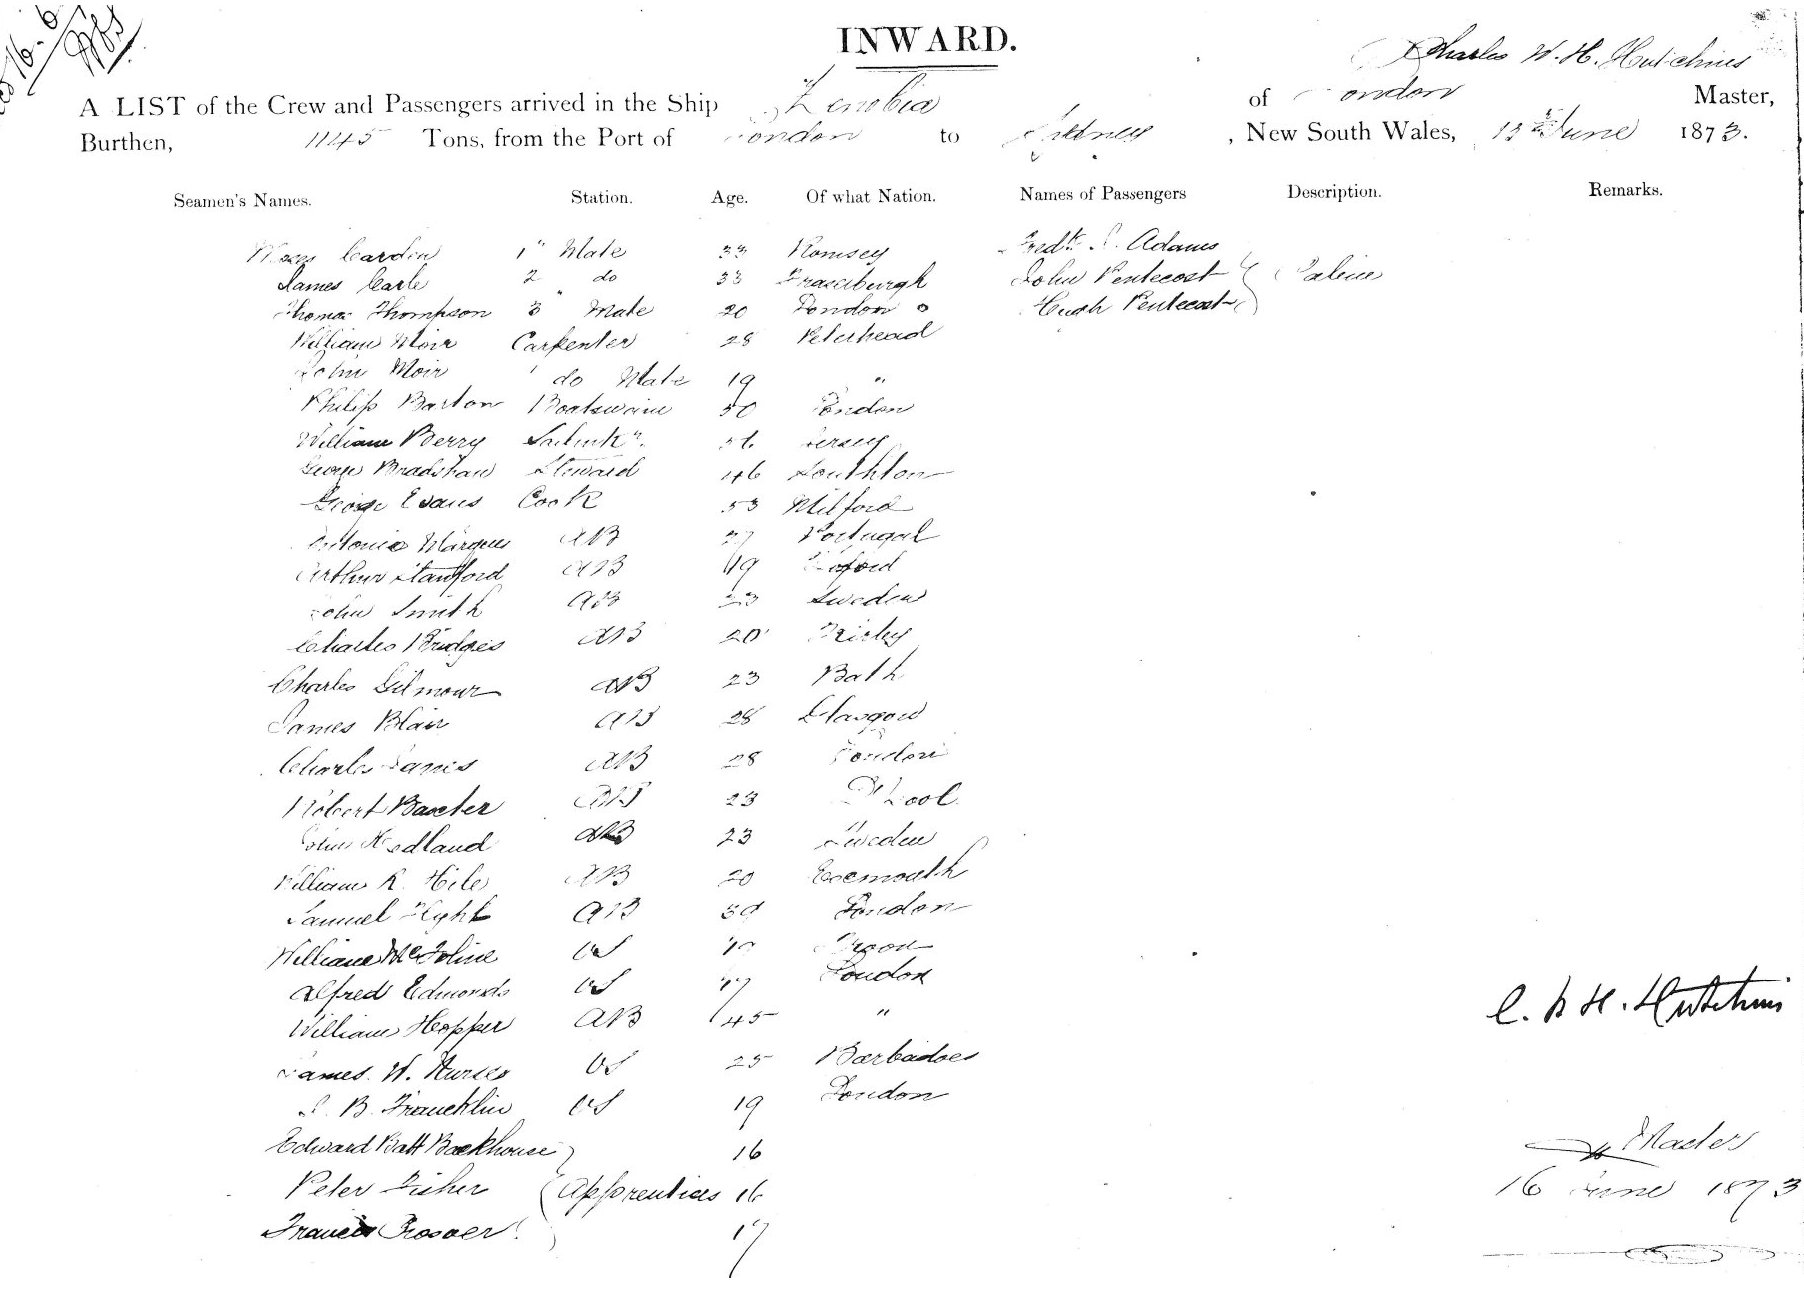 INWARD.
Charles W. H. Hutchins
A LIST of the Crew and Passengers arrived in the Ship Zenobia of London Master,
Burthen, 1145 Tons, from the Port of London to Sydney, New South Wales, June 1873.
Seamen's Names. Station. Age. Of what Nation. Names of Passengers Description. Remarks.
Cardin 1st Mate 33 Romsey Fredk. Adams
James Carle 2 do 33 Fraserburgh John Pentecost
Thomas Thompson 3 Mate 20 London Hugh Pentecost
William Moir Carpenter 28 Peterhead
John Moir do Mate 19 "
Philip Barton Boatswain 50 London
William Berry Jersey
George Bradshaw Steward 46 Southton
George Evans Cook 53 Milford
Antonio Marques AB 27 Portugal
Arthur Stanford AB 19
John Smith AB 23 Sweden
Charles Bridges AB 20
Charles Gilmour AB 23 Bath
James Blair AB 28 Glasgow
Charles AB 28 London
Robert Baxter AB 23 L'pool
John Hedland AB 23 Sweden
William R. Hile AB 20 Exmouth
Samuel AB 59 London
William OS 19
Alfred Edmonds OS 17 London
William Hopper AB 45 "
James W. Nurse OS 25 Barbadoes
B. Francklin OS 19 London
Edward Batt Backhouse 16
Peter Fisher Apprentices 16
Francis 17
C. W H. Hutchins
Master
16 June 1873